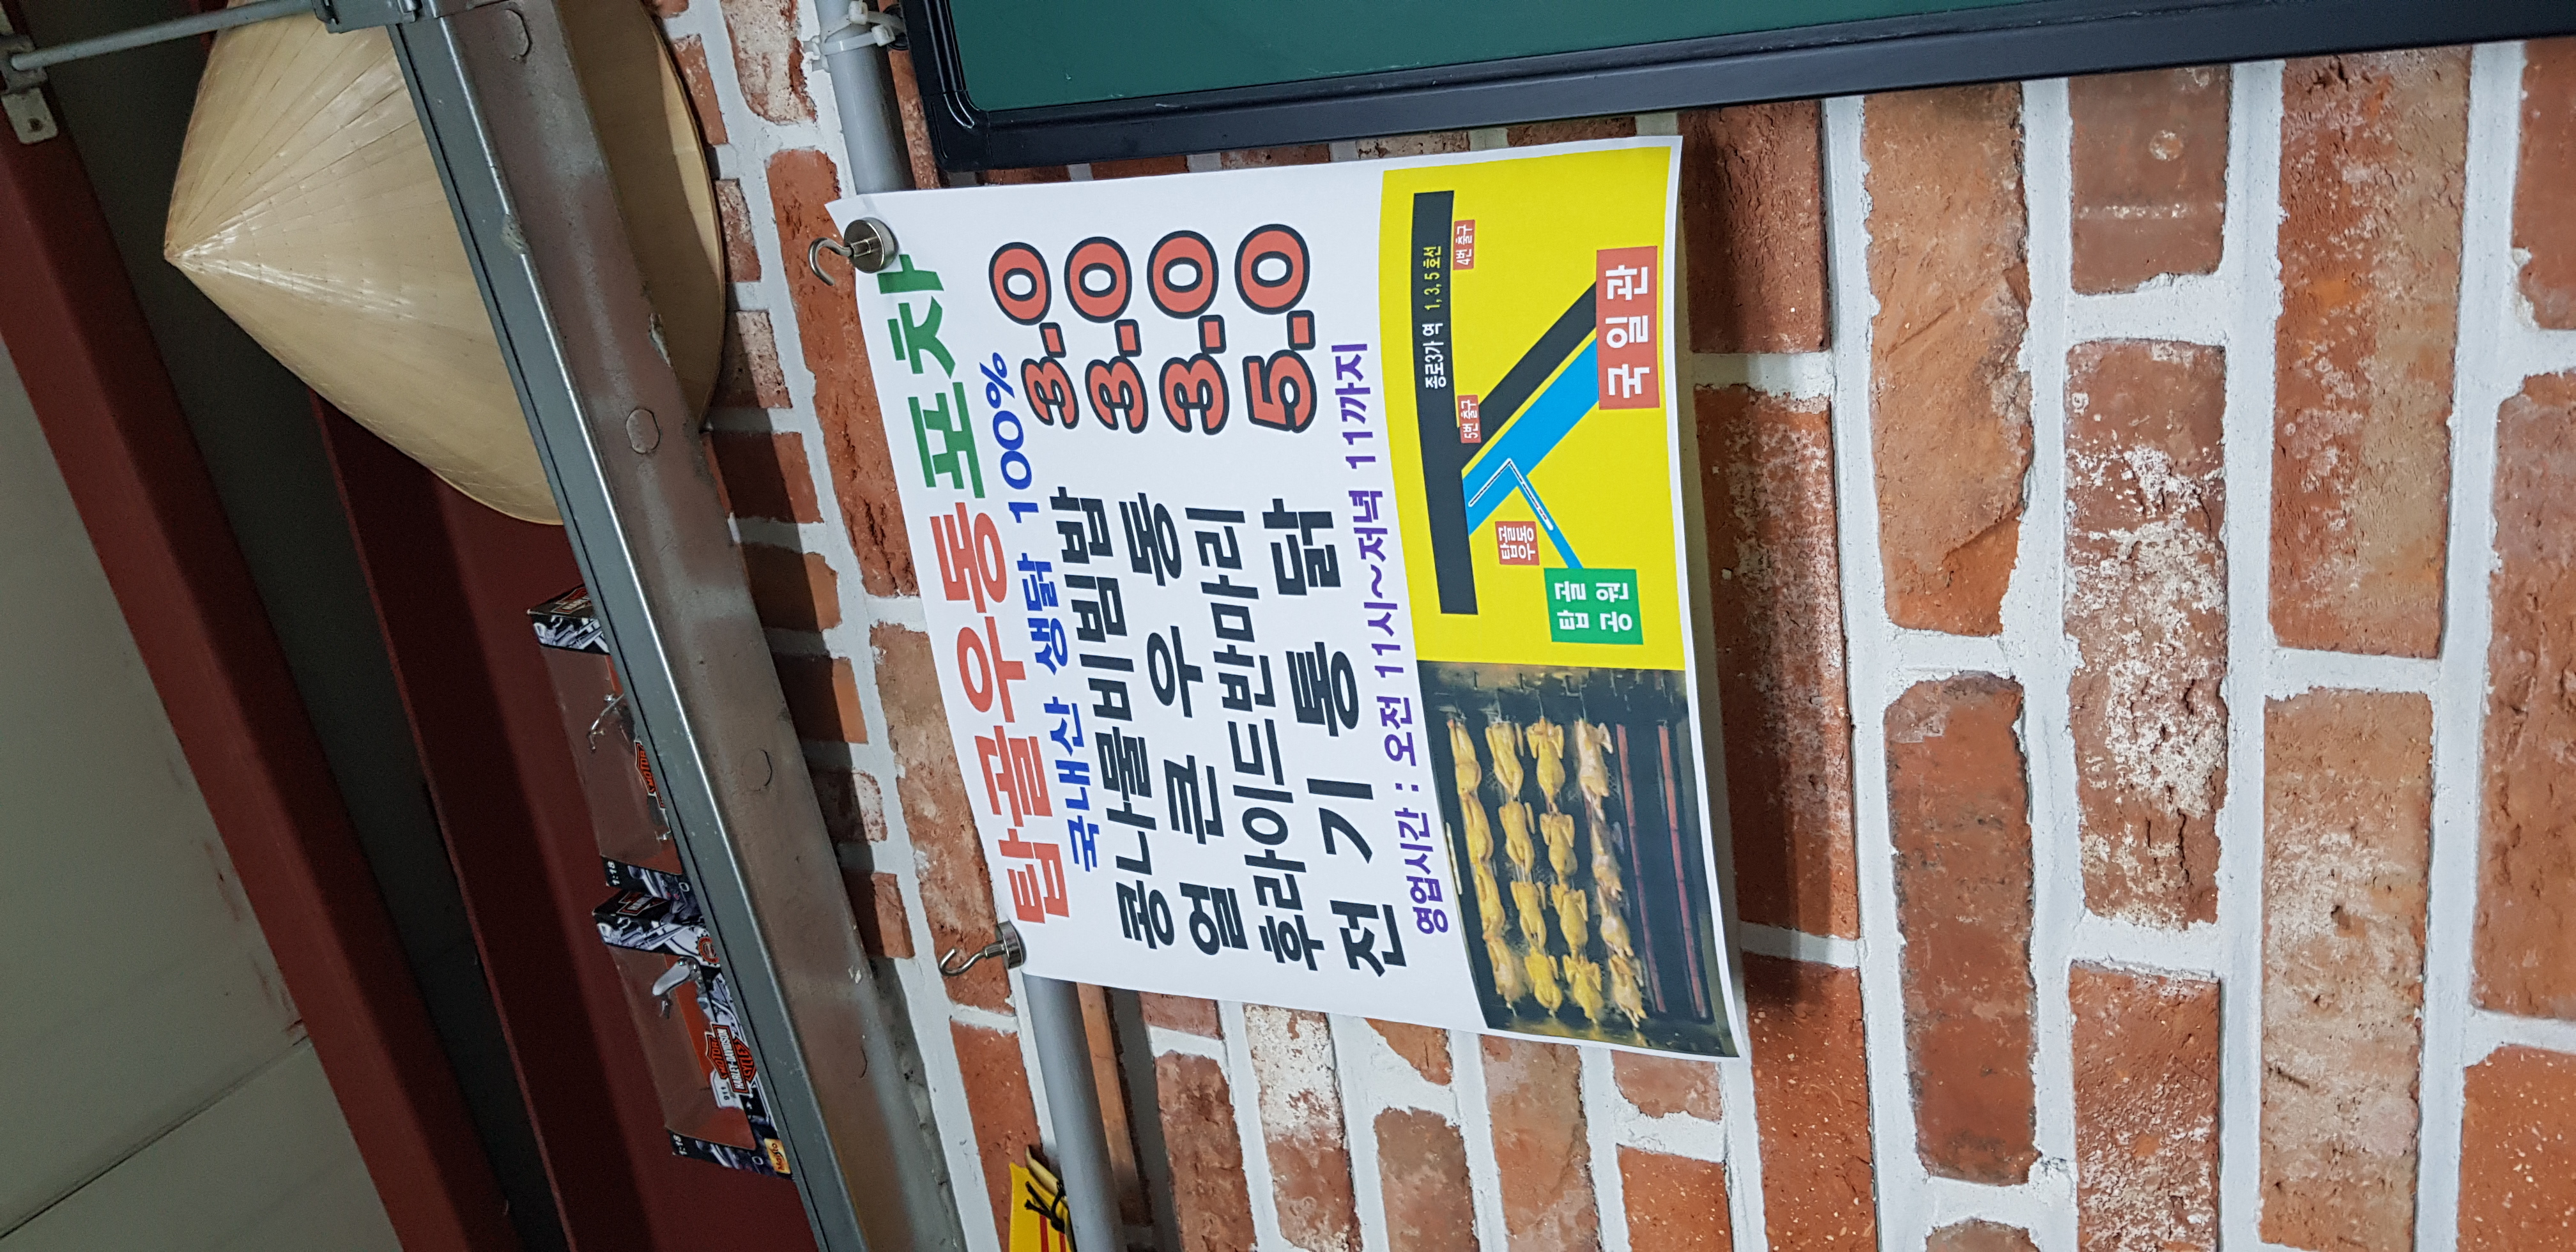 탑골우동포차
국내산 생닭 100%
콩나물비빔밥 3.0
얼큰우동 3.0
후라이드반마리 3.0
전기통닭 5.0
영업시간 : 오전 11시~저녁 11까지
종로3가역 1, 3, 5 호선
5번 출구
4번 출구
탑골
우동
국일관
탑골
공원
MOTOR
HARLEY-DAVIDSON
1:18
1:18
Maisto